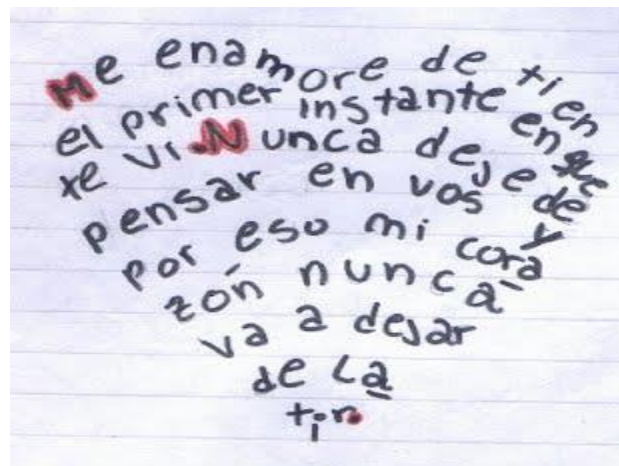 Me enamore de ti en
el primer instante en que
te vi. Nunca deje de
pensar en vos y
por eso mi cora
zón nunca
va a dejar
de la
tir.